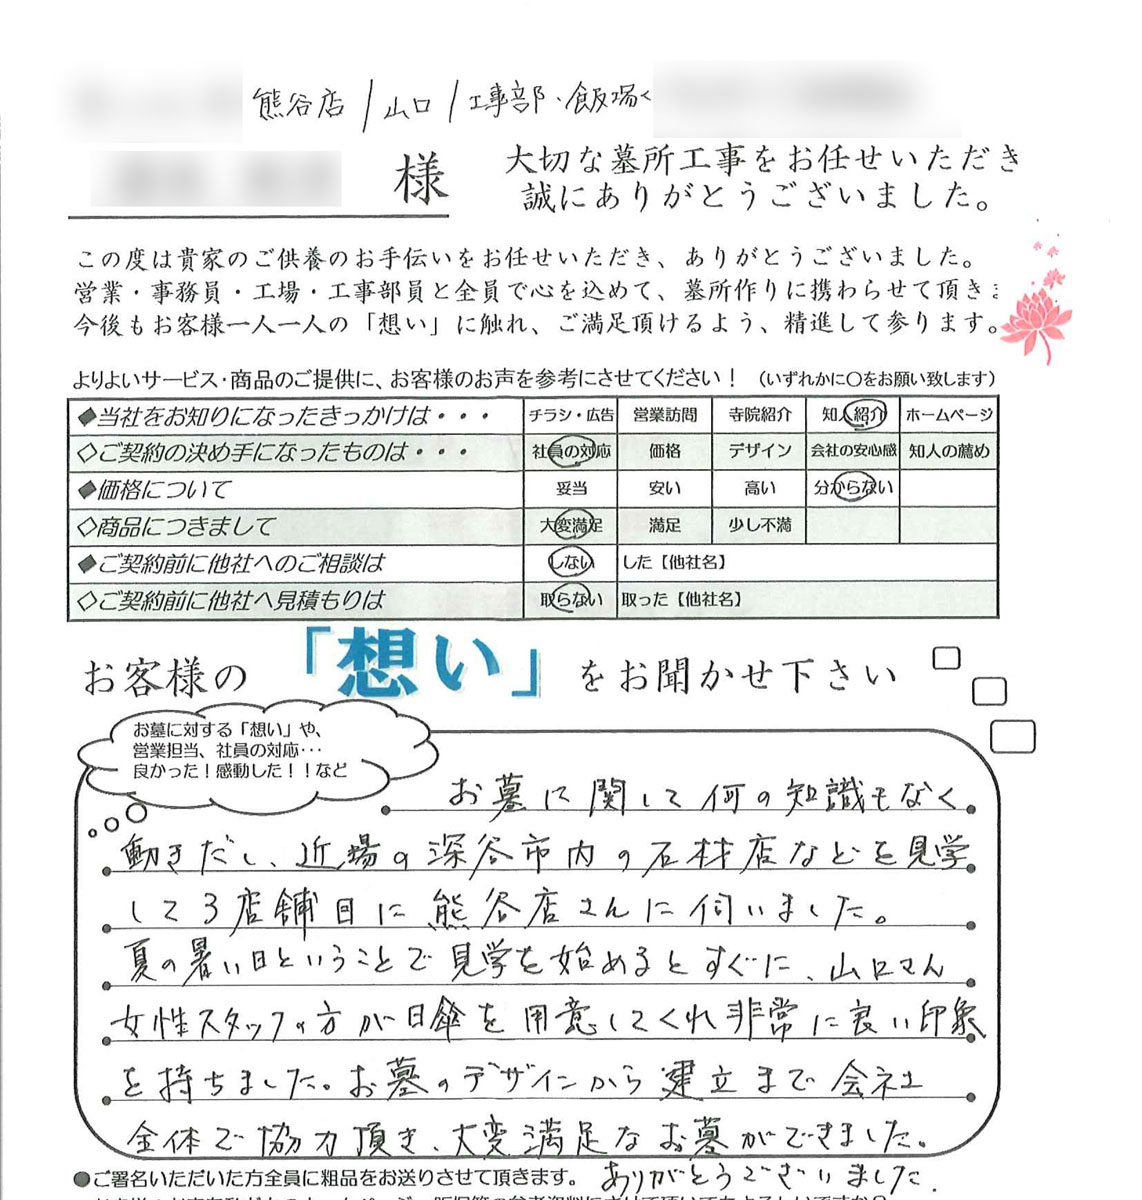 熊谷店 / 山口 / 工事部・飯場
様
大切な墓所工事をお任せいただき
誠にありがとうございました。
この度は貴家のご供養のお手伝いをお任せいただき、ありがとうございました。
営業・事務員・工場・工事部員と全員で心を込めて、墓所作りに携わらせて頂き
今後もお客様一人一人の「想い」に触れ、ご満足頂けるよう、精進して参ります。
よりよいサービス・商品のご提供に、お客様のお声を参考にさせてください！（いずれかに〇をお願い致します）
◆当社をお知りになったきっかけは・・・ チラシ・広告 営業訪問 寺院紹介 知人紹介 ホームページ
◇ご契約の決め手になったものは・・・ 社員の対応 価格 デザイン 会社の安心感 知人の薦め
◆価格について 妥当 安い 高い 分からない
◇商品につきまして 大変満足 満足 少し不満
◆ご契約前に他社へのご相談は しない した【他社名】
◇ご契約前に他社へ見積もりは 取らない 取った【他社名】
お客様の「想い」をお聞かせ下さい
お墓に対する「想い」や、
営業担当、社員の対応…
良かった！感動した！！など
お墓に関して何の知識もなく
動きだし、近場の深谷市内の石材店などを見学
して3店舗目に熊谷店さんに伺いました。
夏の暑い日ということで見学を始めるとすぐに、山口さん
女性スタッフの方が日傘を用意してくれ非常に良い印象
を持ちました。お墓のデザインから建立まで会社
全体で協力頂き、大変満足なお墓ができました。
●ご署名いただいた方全員に粗品をお送りさせて頂きます。 ありがとうございました。